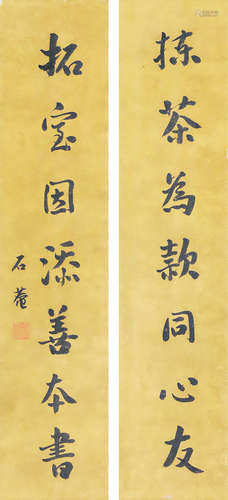 拣茶為款同心友
拓室因添善本書
石菴